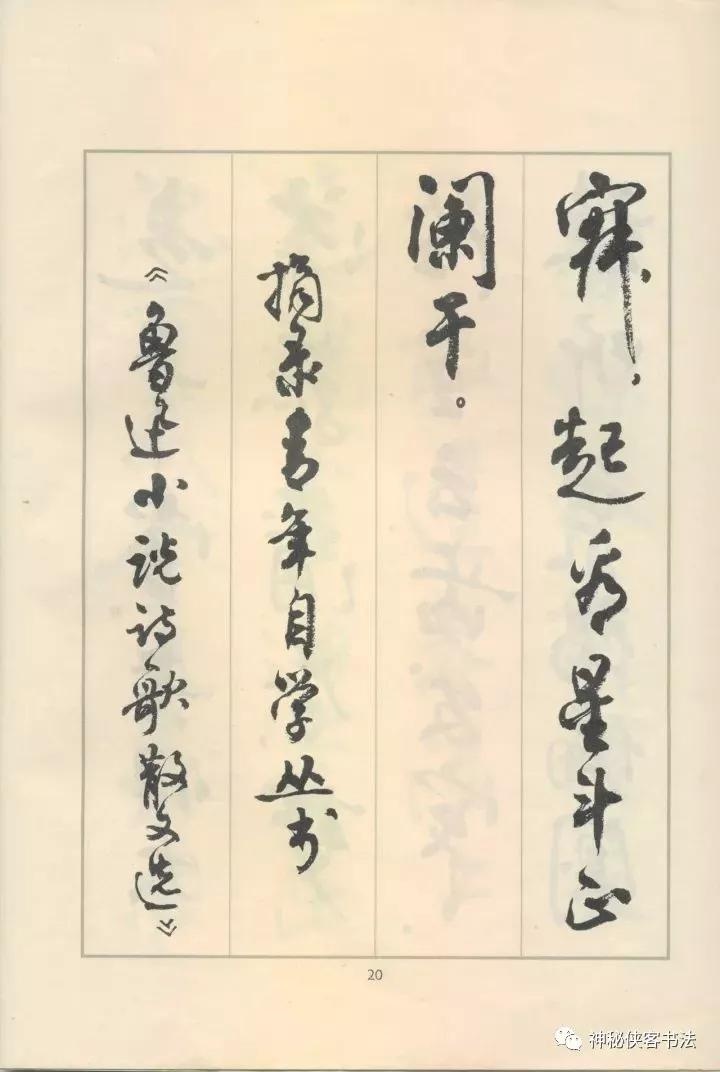 寐，起看星斗正
阑干。
摘录青年自学丛书
《鲁迅小说诗歌散文选》
20
神秘侠客书法